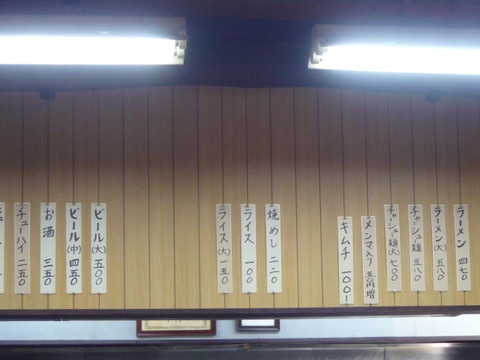 ラーメン 四七〇
ラーメン(大) 五八〇
チャーシュー麺 五八〇
チャーシュー麺(大) 七〇〇
メンマ入り 五〇円増
キムチ 一〇〇
焼めし 二二〇
ライス 一〇〇
ライス(大) 一五〇
ビール(大) 五五〇
ビール(中) 四五〇
お酒 三五〇
チューハイ 二五〇